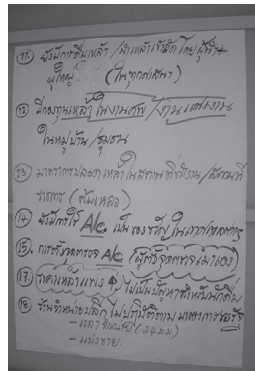 11. ยังมีการดื่มเหล้า / นำเหล้าเข้าวัด โดยผู้นำ
ผู้ใหญ่ (ในทุกศาสนา)
12. มีกองทุนเหล้าในงานศพ / งานแต่งงาน
ในหมู่บ้าน / ชุมชน
13. มาตรการปลอดเหล้าในสถานที่ทำงาน / สถานที่
ราชการ (ล้มเหลว)
14. ยังมีการใช้ Alc เป็นของขวัญในเทศกาล
15. การตั้งจุดตรวจ Alc (ผู้ตั้งจุดตรวจเมาเอง)
17. ราคาเหล้าแพง ไม่เป็นปัญหาสำหรับนักดื่ม
18. ร้านจำหน่ายปลีก ไม่ปฏิบัติตามมาตรการของรัฐ
- เวลาจำหน่าย (24 ชม)
- แบ่งขาย